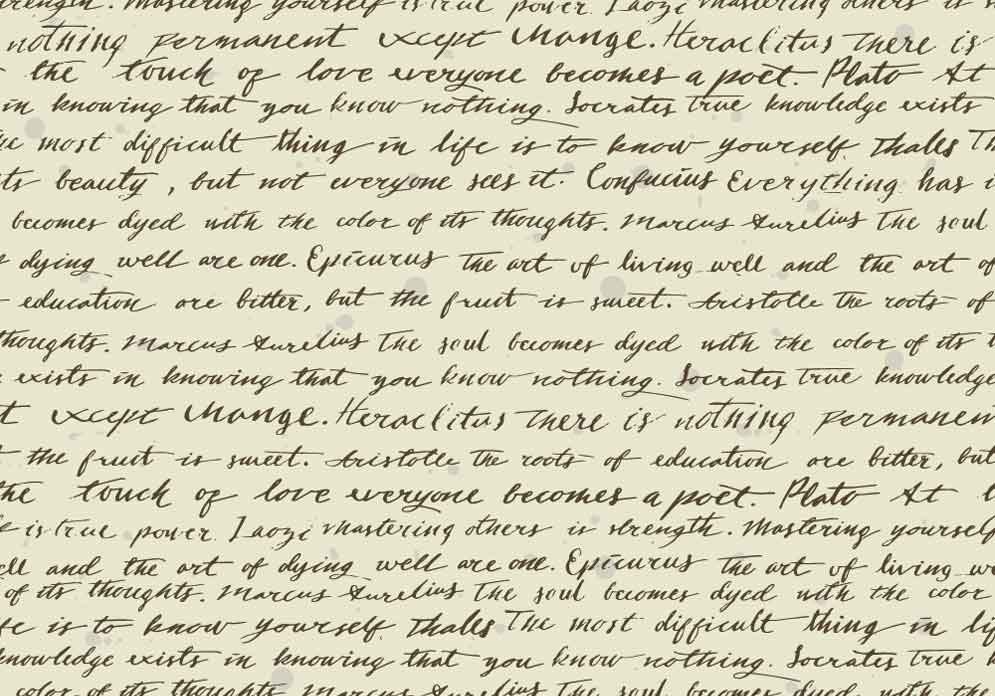 strength. Mastering yourself is true power. Laozi Mastering others is
nothing permanent except change. Heraclitus There is
the touch of love everyone becomes a poet. Plato At
in knowing that you know nothing. Socrates True knowledge exists
most difficult thing in life is to know yourself. Thales
beauty, but not everyone sees it. Confucius Everything has
becomes dyed with the color of its thoughts. Marcus Aurelius The soul
dying well are one. Epicurus The art of living well and the art of
education are bitter, but the fruit is sweet. Aristotle The roots of
thoughts. Marcus Aurelius The soul becomes dyed with the color of its
exists in knowing that you know nothing. Socrates True knowledge
except change. Heraclitus There is nothing permanent
the fruit is sweet. Aristotle The roots of education are bitter, but
the touch of love everyone becomes a poet. Plato At
is true power. Laozi Mastering others is strength. Mastering yourself
and the art of dying well are one. Epicurus The art of living
of its thoughts. Marcus Aurelius The soul becomes dyed with the color
is to know yourself. Thales The most difficult thing in
knowledge exists in knowing that you know nothing. Socrates True
color of its thoughts. Marcus Aurelius The soul becomes dyed with the